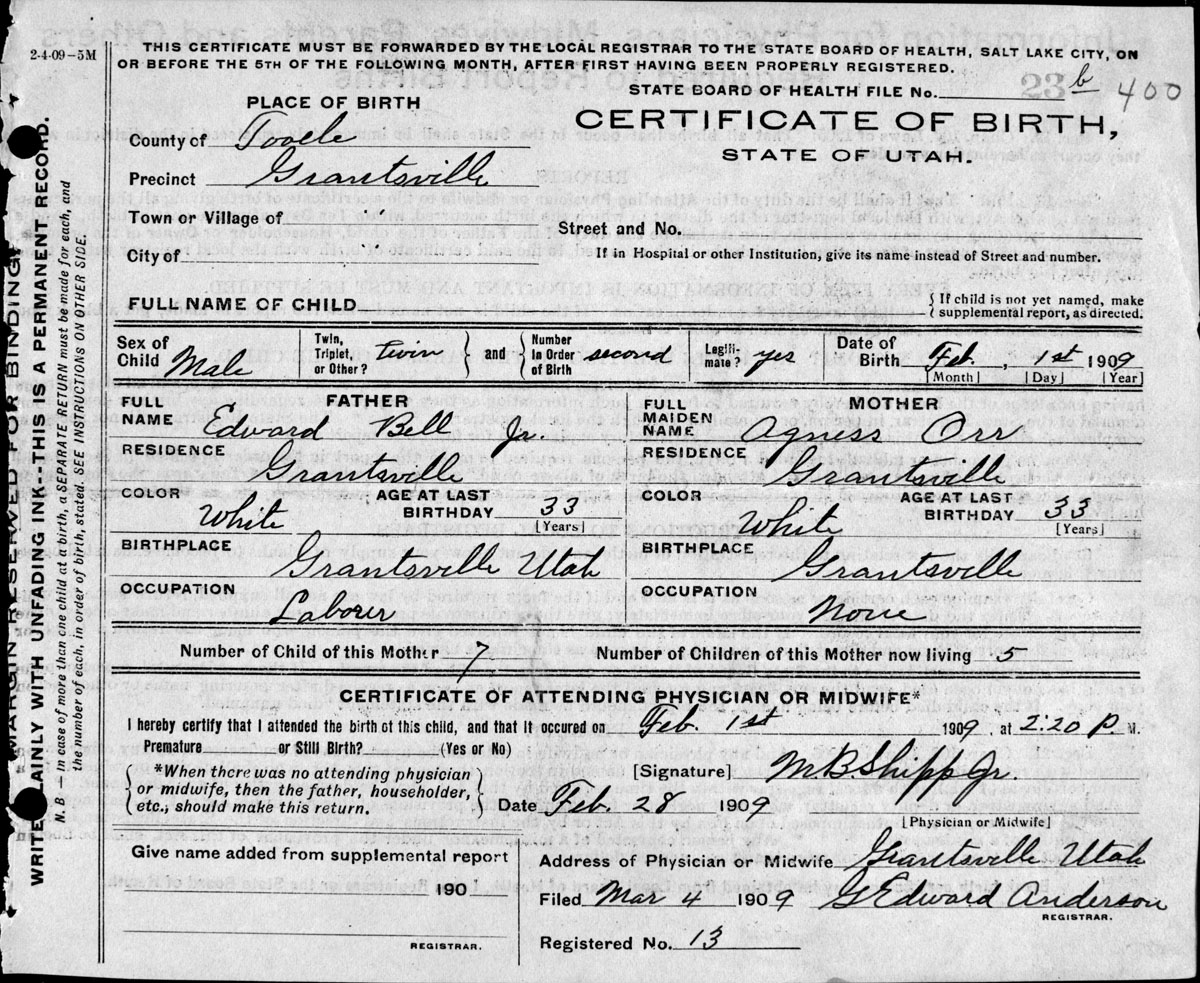 2-4-09-5M
THIS CERTIFICATE MUST BE FORWARDED BY THE LOCAL REGISTRAR TO THE STATE BOARD OF HEALTH, SALT LAKE CITY, ON
OR BEFORE THE 5TH OF THE FOLLOWING MONTH, AFTER FIRST HAVING BEEN PROPERLY REGISTERED.
STATE BOARD OF HEALTH FILE No. 23 b 400
PLACE OF BIRTH
CERTIFICATE OF BIRTH,
STATE OF UTAH.
County of Tooele
Precinct Grantsville
Town or Village of
Street and No.
City of
If in Hospital or other Institution, give its name instead of Street and number.
FULL NAME OF CHILD
{ If child is not yet named, make
supplemental report, as directed.
Sex of Child Male
Twin, Triplet, or Other? twin } and { Number in Order of Birth second
Legiti-mate? yes
Date of Birth Feb. , 1st 1909
[Month] [Day] [Year]
FATHER
FULL NAME Edward Bell Jr.
RESIDENCE Grantsville
COLOR White
AGE AT LAST BIRTHDAY 33 [Years]
BIRTHPLACE Grantsville Utah
OCCUPATION Laborer
MOTHER
FULL MAIDEN NAME Agness Orr
RESIDENCE Grantsville
COLOR White
AGE AT LAST BIRTHDAY 33 [Years]
BIRTHPLACE Grantsville
OCCUPATION None
Number of Child of this Mother 7 Number of Children of this Mother now living 5
CERTIFICATE OF ATTENDING PHYSICIAN OR MIDWIFE*
I hereby certify that I attended the birth of this child, and that it occured on Feb. 1st 1909, at 2:20 P. M.
Premature or Still Birth? (Yes or No)
{ *When there was no attending physician
or midwife, then the father, householder,
etc., should make this return. }
[Signature] M. B. Shipp Jr.
Date Feb. 28 1909
[Physician or Midwife]
Give name added from supplemental report
190
REGISTRAR.
Address of Physician or Midwife Grantsville Utah
Filed Mar 4 1909 G Edward Anderson
REGISTRAR.
Registered No. 13
MARGIN RESERVED FOR BINDING
WRITE PLAINLY WITH UNFADING INK--THIS IS A PERMANENT RECORD.
N. B. — In case of more then one child at a birth, a SEPARATE RETURN must be made for each, and
the number of each, in order of birth, stated. SEE INSTRUCTIONS ON OTHER SIDE.